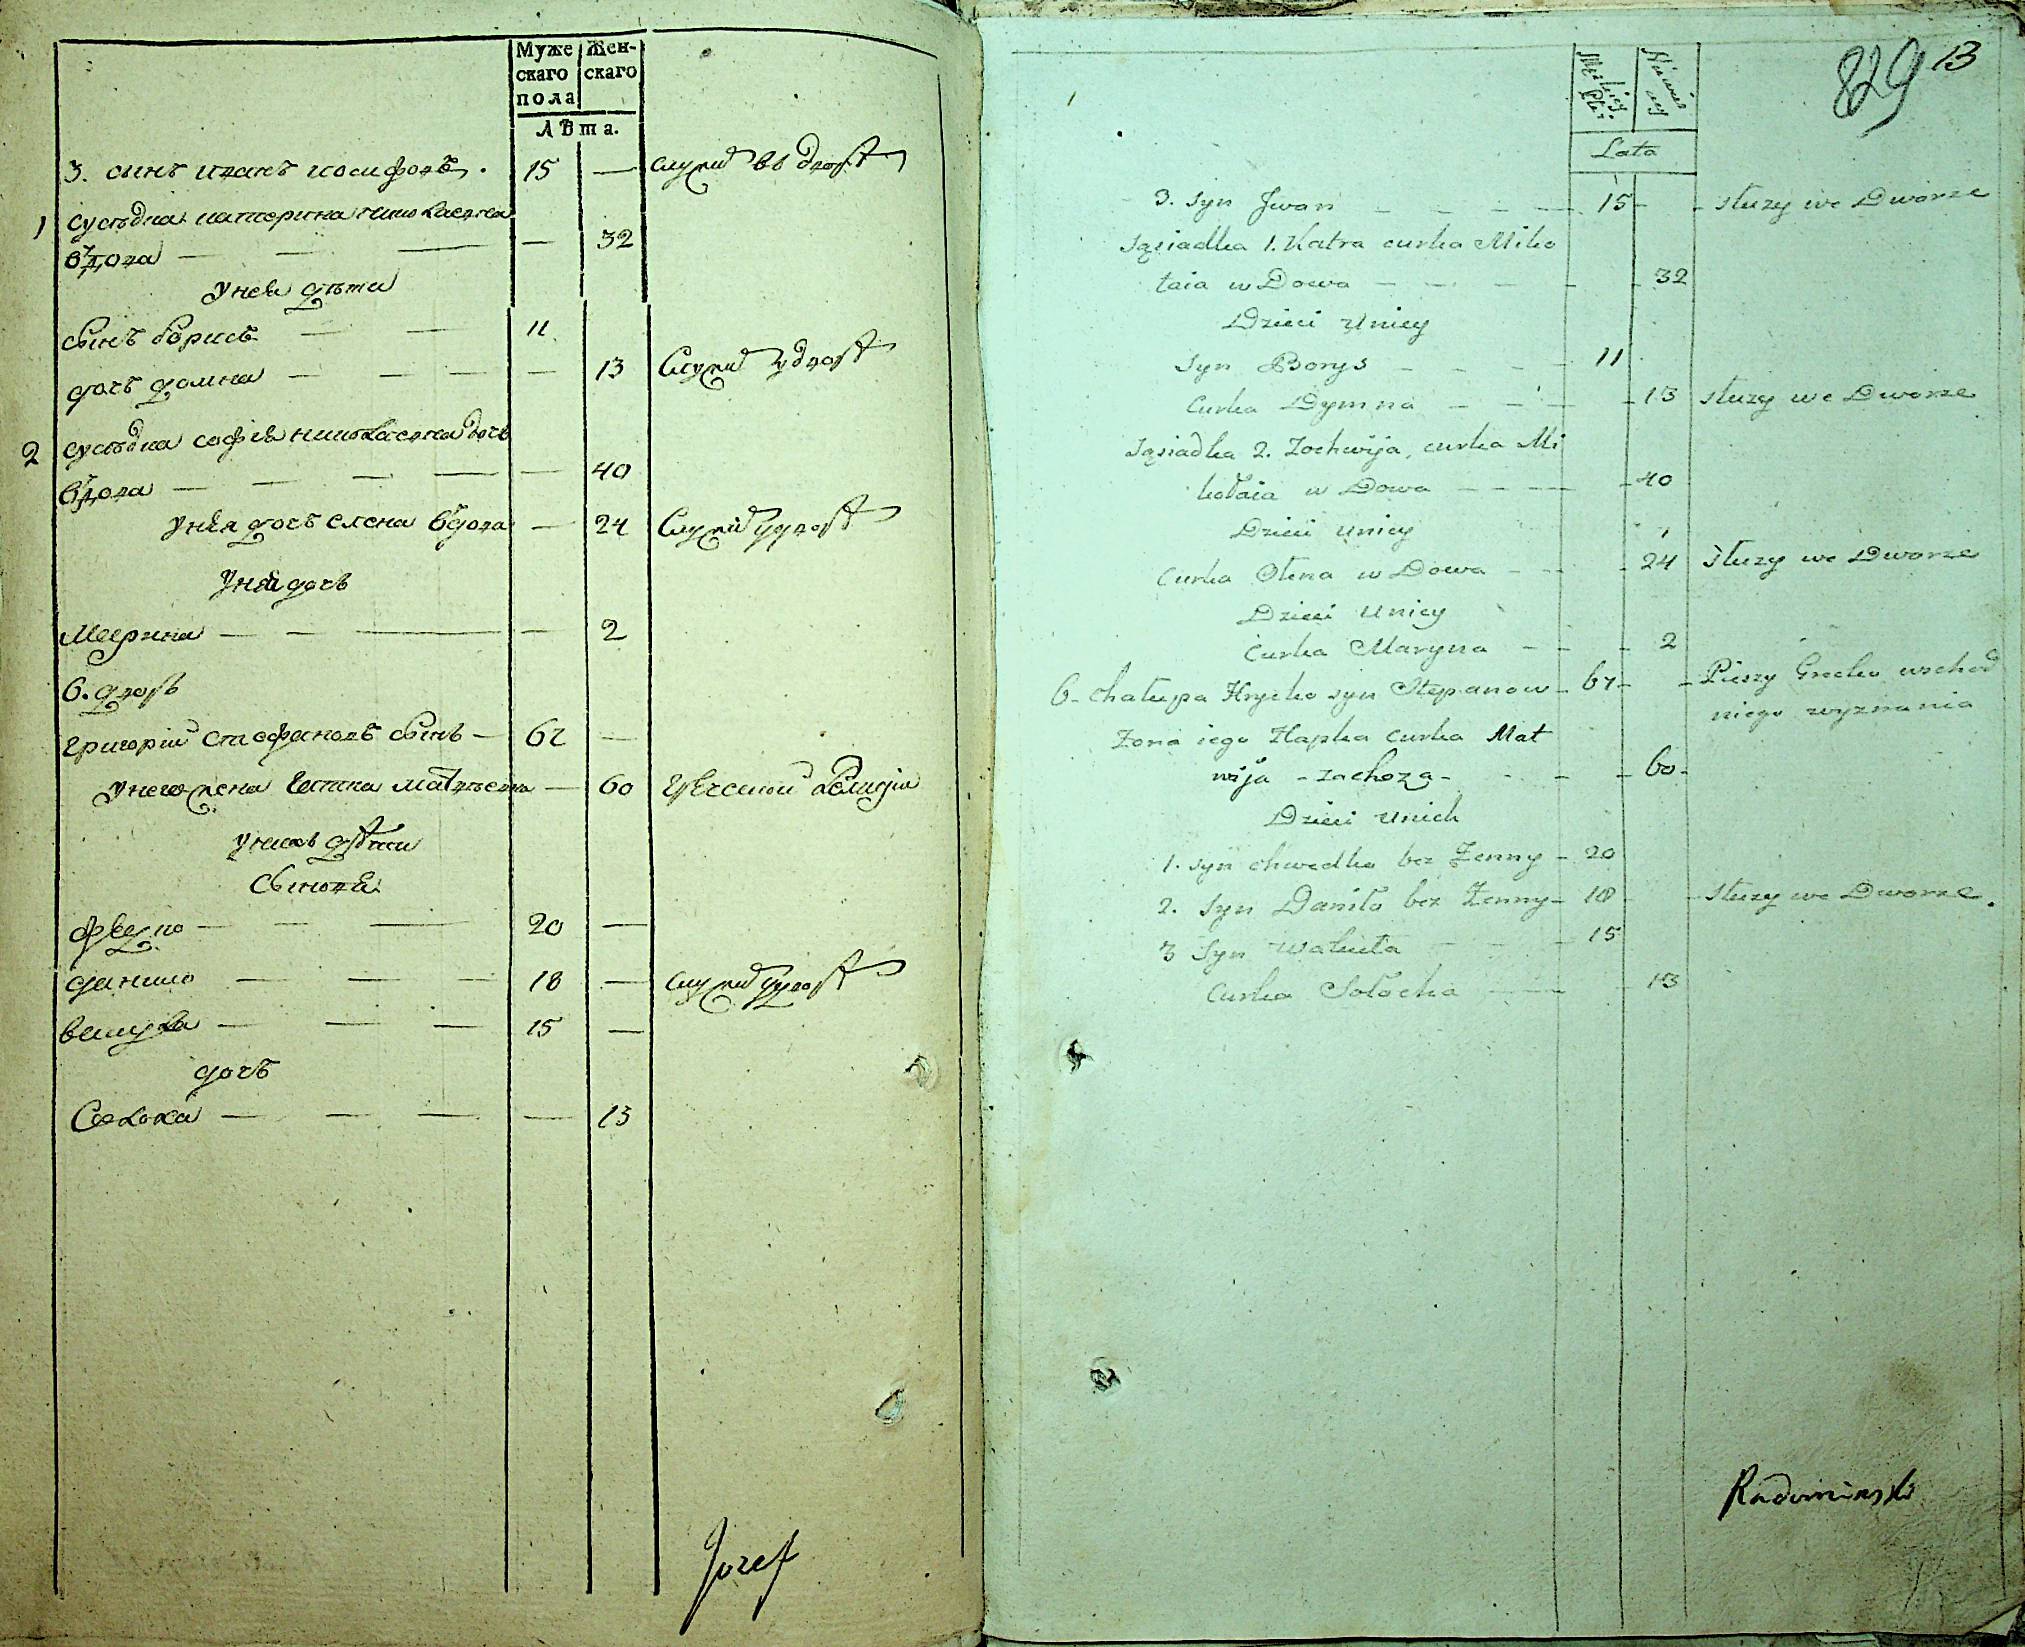 Муже
скаго
пола
Жен-
скаго
Лѣта.
3. сынъ иванъ иосифовъ. 15 — служит въ дворѣ
1 сусѣдка катерина николаевна
вдова — — — — 32
у нея дѣти
сынъ борисъ — — 11
дочь домна — — — — 13 служит у дворѣ
2 сусѣдка софія николаевна дочь
вдова — — — — — 40
у нея дочь елена вдова — 24 служит у дворѣ
у нея дочь
Марина — — — — 2
6. дворъ
григорий стефановъ сынъ — 67 —
у него жена гапка матвѣевна — 60 греческой религии
у нихъ дѣти
сынова
федко — — — 20 —
данило — — — 18 — служит у дворѣ
вакула — — — 15 —
дочь
Солоха — — — — 13
Jozef
829 13
Męskiey
Płci
Lata
3. Syn Jwan — — — — 15 — — służy we Dworze
Sąsiadka 1. Katra curka Miko
łaia w Dowa — — — — — 32
Dzieci Uniey
Syn Borys — — — — 11
Curka Dymna — — — — 13 służy we Dworze
Sąsiadka 2. Zochwija, curka Mi
kołaia w Dowa — — — — 40
Dzieci Uniey
Curka Ołena w Dowa — — — 24 Służy we Dworze
Dzieci Uniey
Curka Maryna — — — 2
6 - Chałupa Hrycko syn Stepanow — 67 — — Pieszy Grecko wschod
niego wyznania
Zona iego Hapka curka Mat
wija - zachoza - — — — 60 -
Dzieci Unich
1. Syn Chwedko bez Zenny — 20
2. Syn Daniło bez Zenny — 18 — służy we Dworze.
3 Syn Wakuła — — — 15
Curka Sołocha — — — 13
Radominski